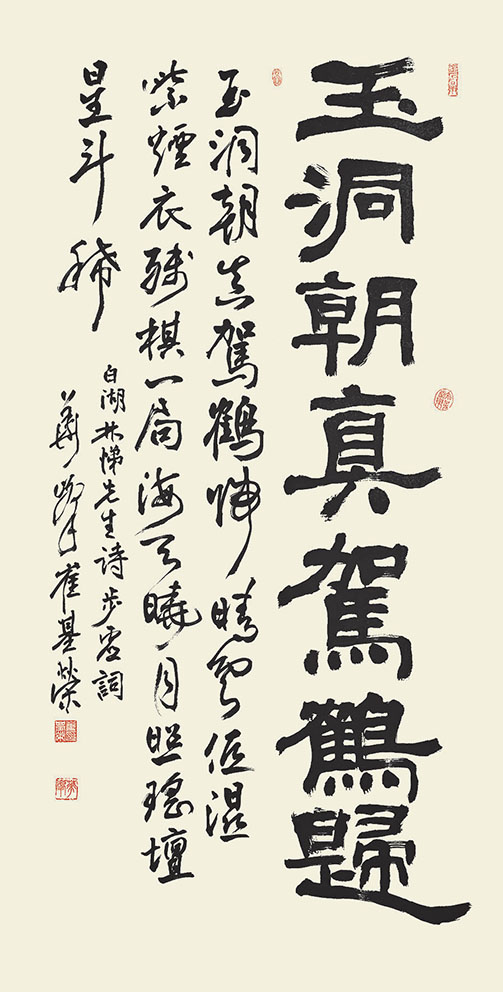 玉洞朝真駕鶴歸
玉洞朝真駕鶴歸晴雲低濕
紫煙衣殘棋一局海天曉月照瑤壇
星斗稀
白湖林悌先生詩步虛詞
崔基榮